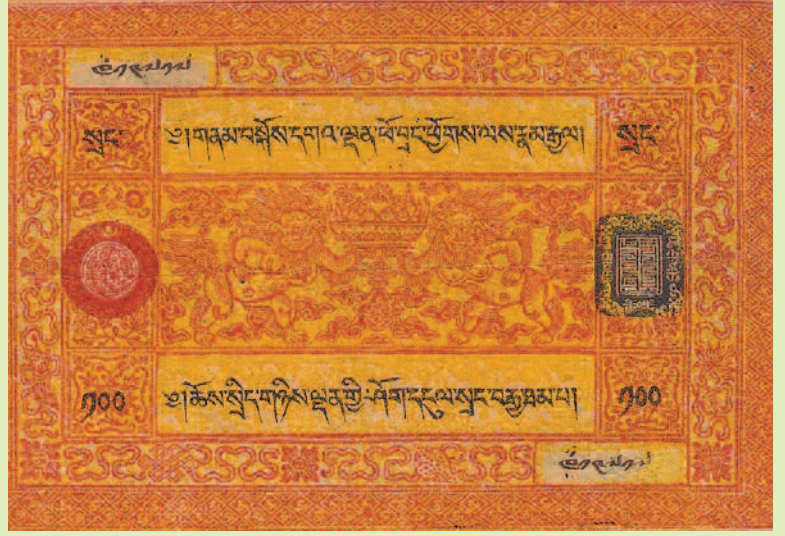 སྲང་ ༄།གནམ་བསྐོས་དགའ་ལྡན་ཕོ་བྲང་ཕྱོགས་ལས་རྣམ་རྒྱལ། སྲང་
༡༠༠ ༄།ཆོས་སྲིད་གཉིས་ལྡན་གྱི་ཤོག་དངུལ་སྲང་བརྒྱ་ཐམ་པ། ༡༠༠